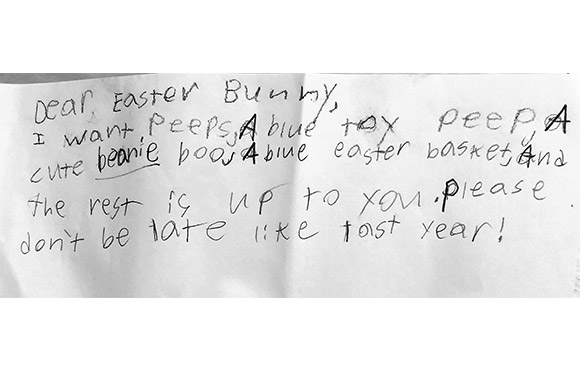 Dear, Easter Bunny,
I want, Peeps, A blue toy peep, A
cute beanie boo, A blue easter basket, And
the rest is up to you. please
don't be late like last year!